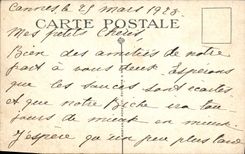 Cannes, le 25 mars 1928.
CARTE POSTALE
Mes petits Cheris
Bien des amitiés de notre
part à vous deux. Espérons
que les soucis sont ecartés
et que notre Biche sera tou-
jours de mieux en mieux.
J'espère qu'un peu plus tard